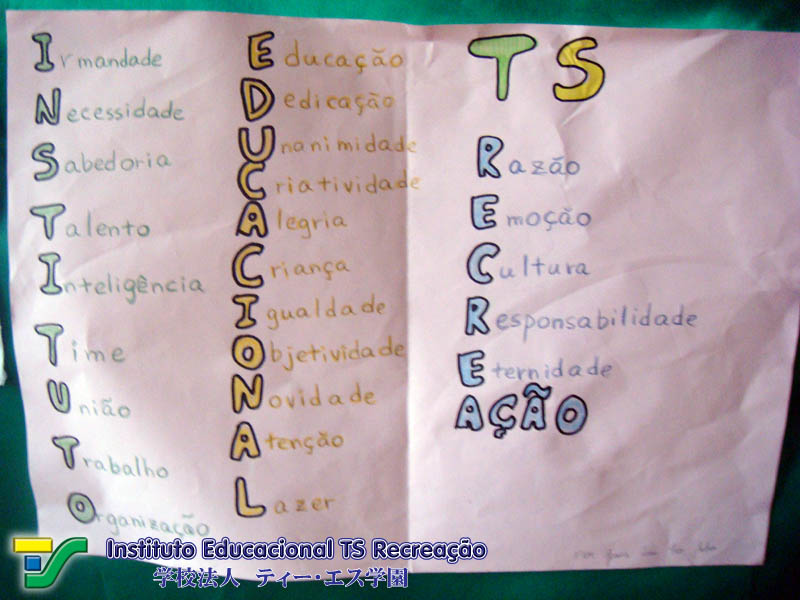 Irmandade
Necessidade
Sabedoria
Talento
Inteligência
Time
União
Trabalho
Organização
Educação
Dedicação
Unanimidade
Criatividade
Alegria
Criança
Igualdade
Objetividade
Novidade
Atenção
Lazer
TS
Razão
Emoção
Cultura
Responsabilidade
Eternidade
AÇÃO
Instituto Educacional TS Recreação
学校法人 ティー・エス学園